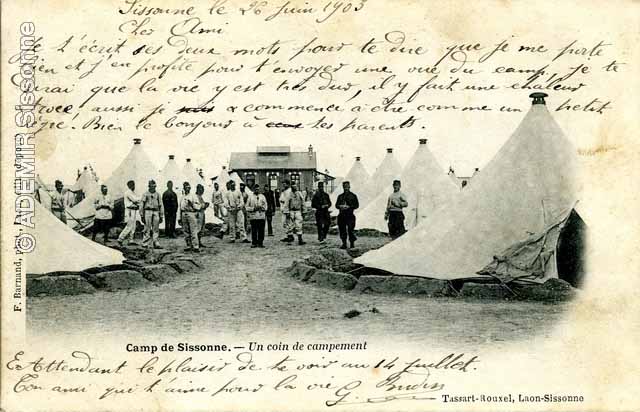 Sissonne le 26 Juin 1903
Cher Ami
Je t'écrit ses deux mots pour te dire que je me porte
bien et j'en profite pour t'envoyer une vue du camp, je te
dirai que la vie y est très dur, il y fait une chaleur
aussi je commence à être comme un petit
Bien le bonjour à tes parents.
© ADEMIR Sissonne
F. Barnand, phot., Laon
Camp de Sissonne. — Un coin de campement
En Attendant le plaisir de te voir au 14 Juillet
Ton ami qui t'aime pour la vie G.
Tassart-Rouxel, Laon-Sissonne